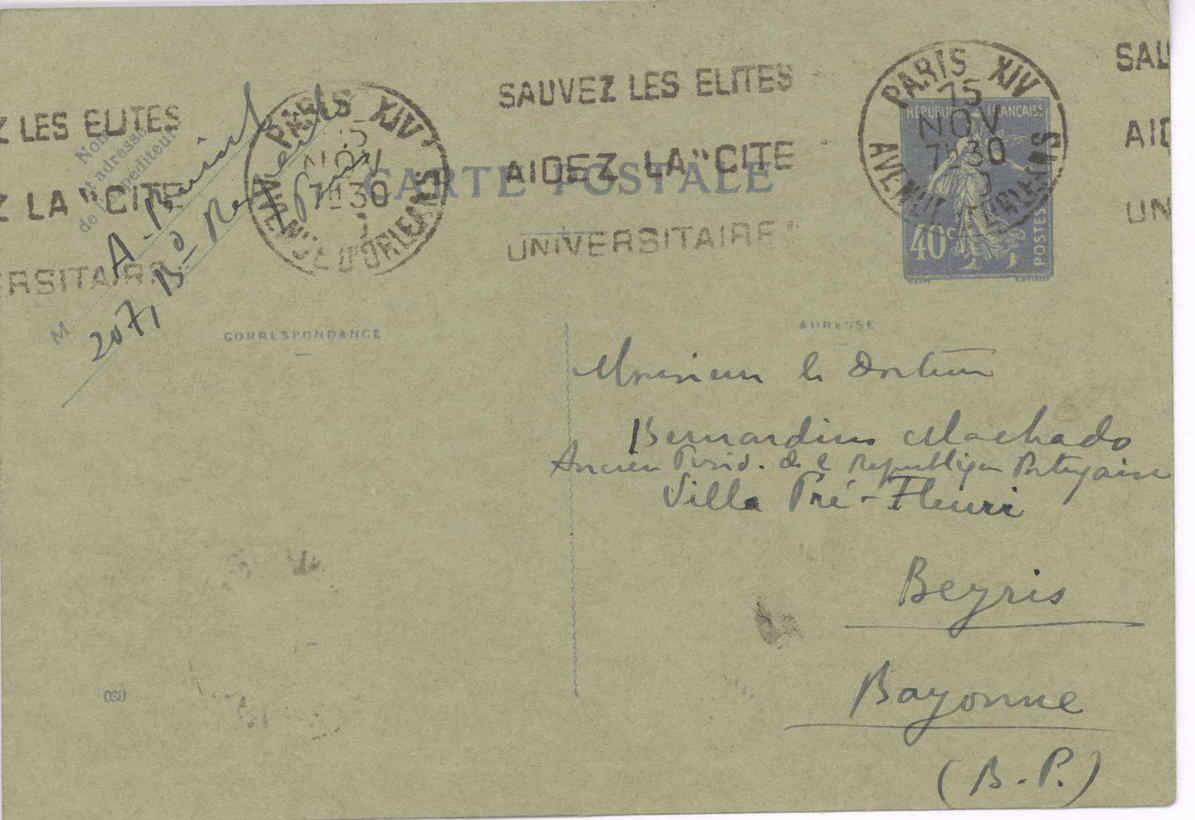 SAUVEZ LES ELITES
AIDEZ LA "CITE
UNIVERSITAIRE"
SAU
AID
UN
Z LES ELITES
Z LA "CITE
ERSITAIRE
PARIS XIV
15
NOV
7H30
AVENUE D'ORLEANS
PARIS XIV
15
NOV
7H30
AVENUE D'ORLEANS
RÉPUBLIQUE FRANÇAISE
40c
POSTES
CARTE POSTALE
Nom
et adresse
de l'expéditeur
M
A.
207, Bd
CORRESPONDANCE
ADRESSE
Monsieur le Docteur
Bernardino Machado
Ancien Présid. de la République Portugaise
Villa Pré-Fleuri
Beyris
Bayonne
(B.P.)